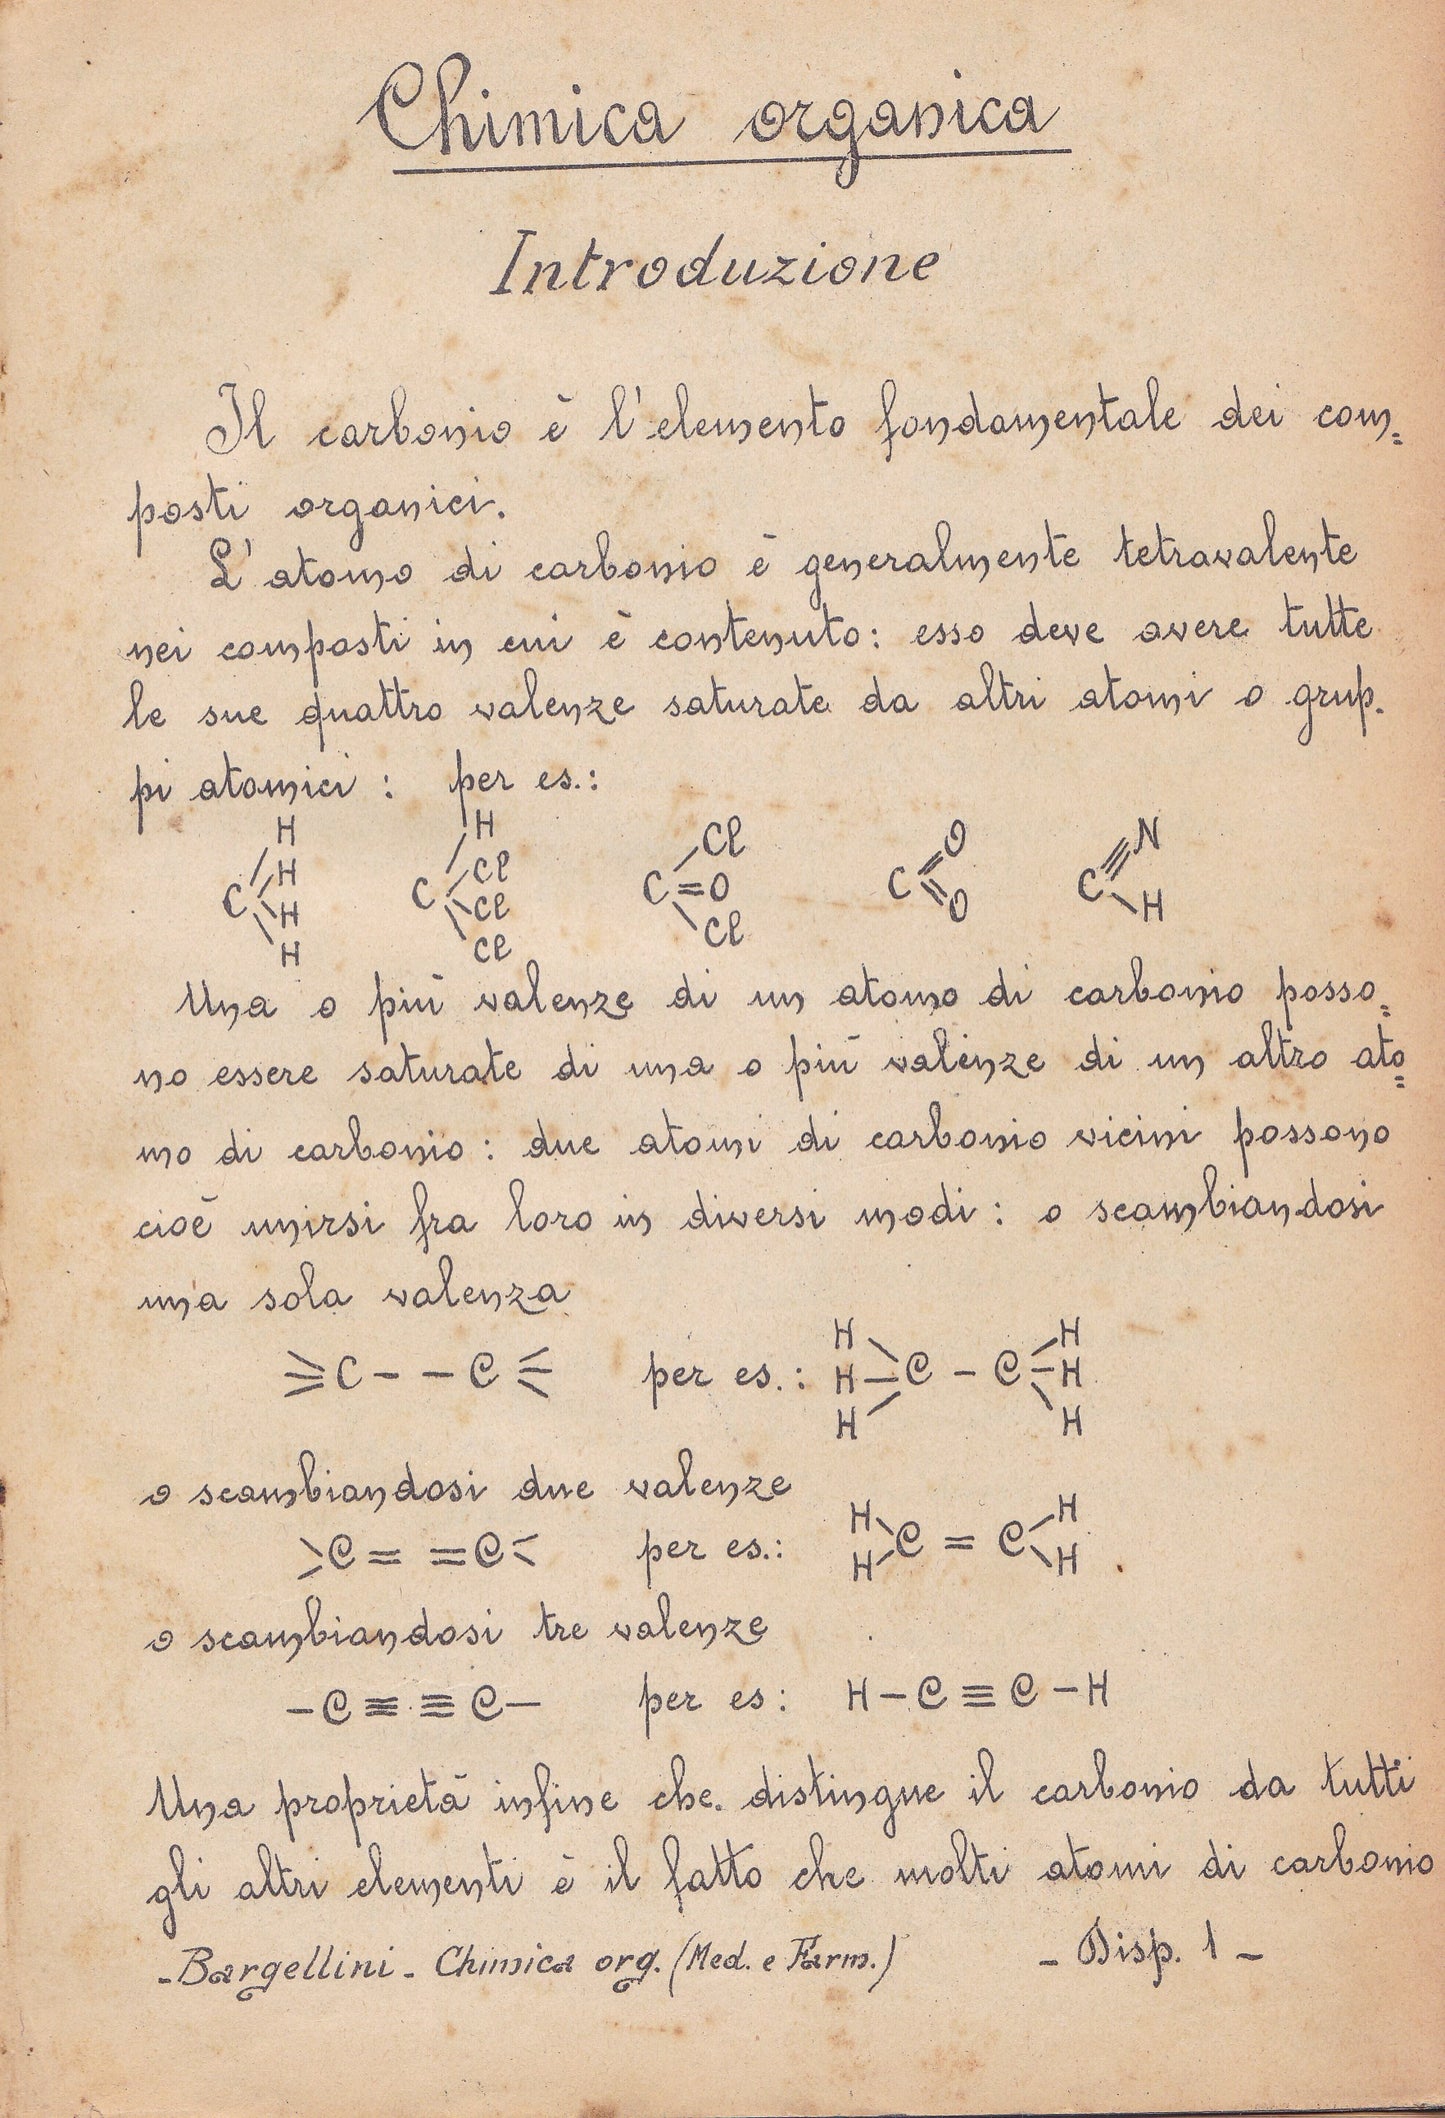 Chimica organica
Introduzione
Il carbonio è l'elemento fondamentale dei com=
posti organici.
L'atomo di carbonio è generalmente tetravalente
nei composti in cui è contenuto: esso deve avere tutte
le sue quattro valenze saturate da altri atomi o grup-
pi atomici: per es.:
H H Cl O N
H Cl
C H C Cl C =O C C
H Cl Cl O H
H Cl
Una o più valenze di un atomo di carbonio posso=
no essere saturate di una o più valenze di un altro ato=
mo di carbonio: due atomi di carbonio vicini possono
cioè unirsi fra loro in diversi modi: o scambiandosi
una sola valenza
H H
≡C - - C≡ per es.: H - C - C - H
H H
o scambiandosi due valenze
H H
>C = = C< per es.: C = C
H H
o scambiandosi tre valenze
-C ≡ ≡ C- per es: H-C ≡ C-H
Una proprietà infine che distingue il carbonio da tutti
gli altri elementi è il fatto che molti atomi di carbonio
-Bargellini- Chimica org. (Med. e Farm.) - Disp. 1 -